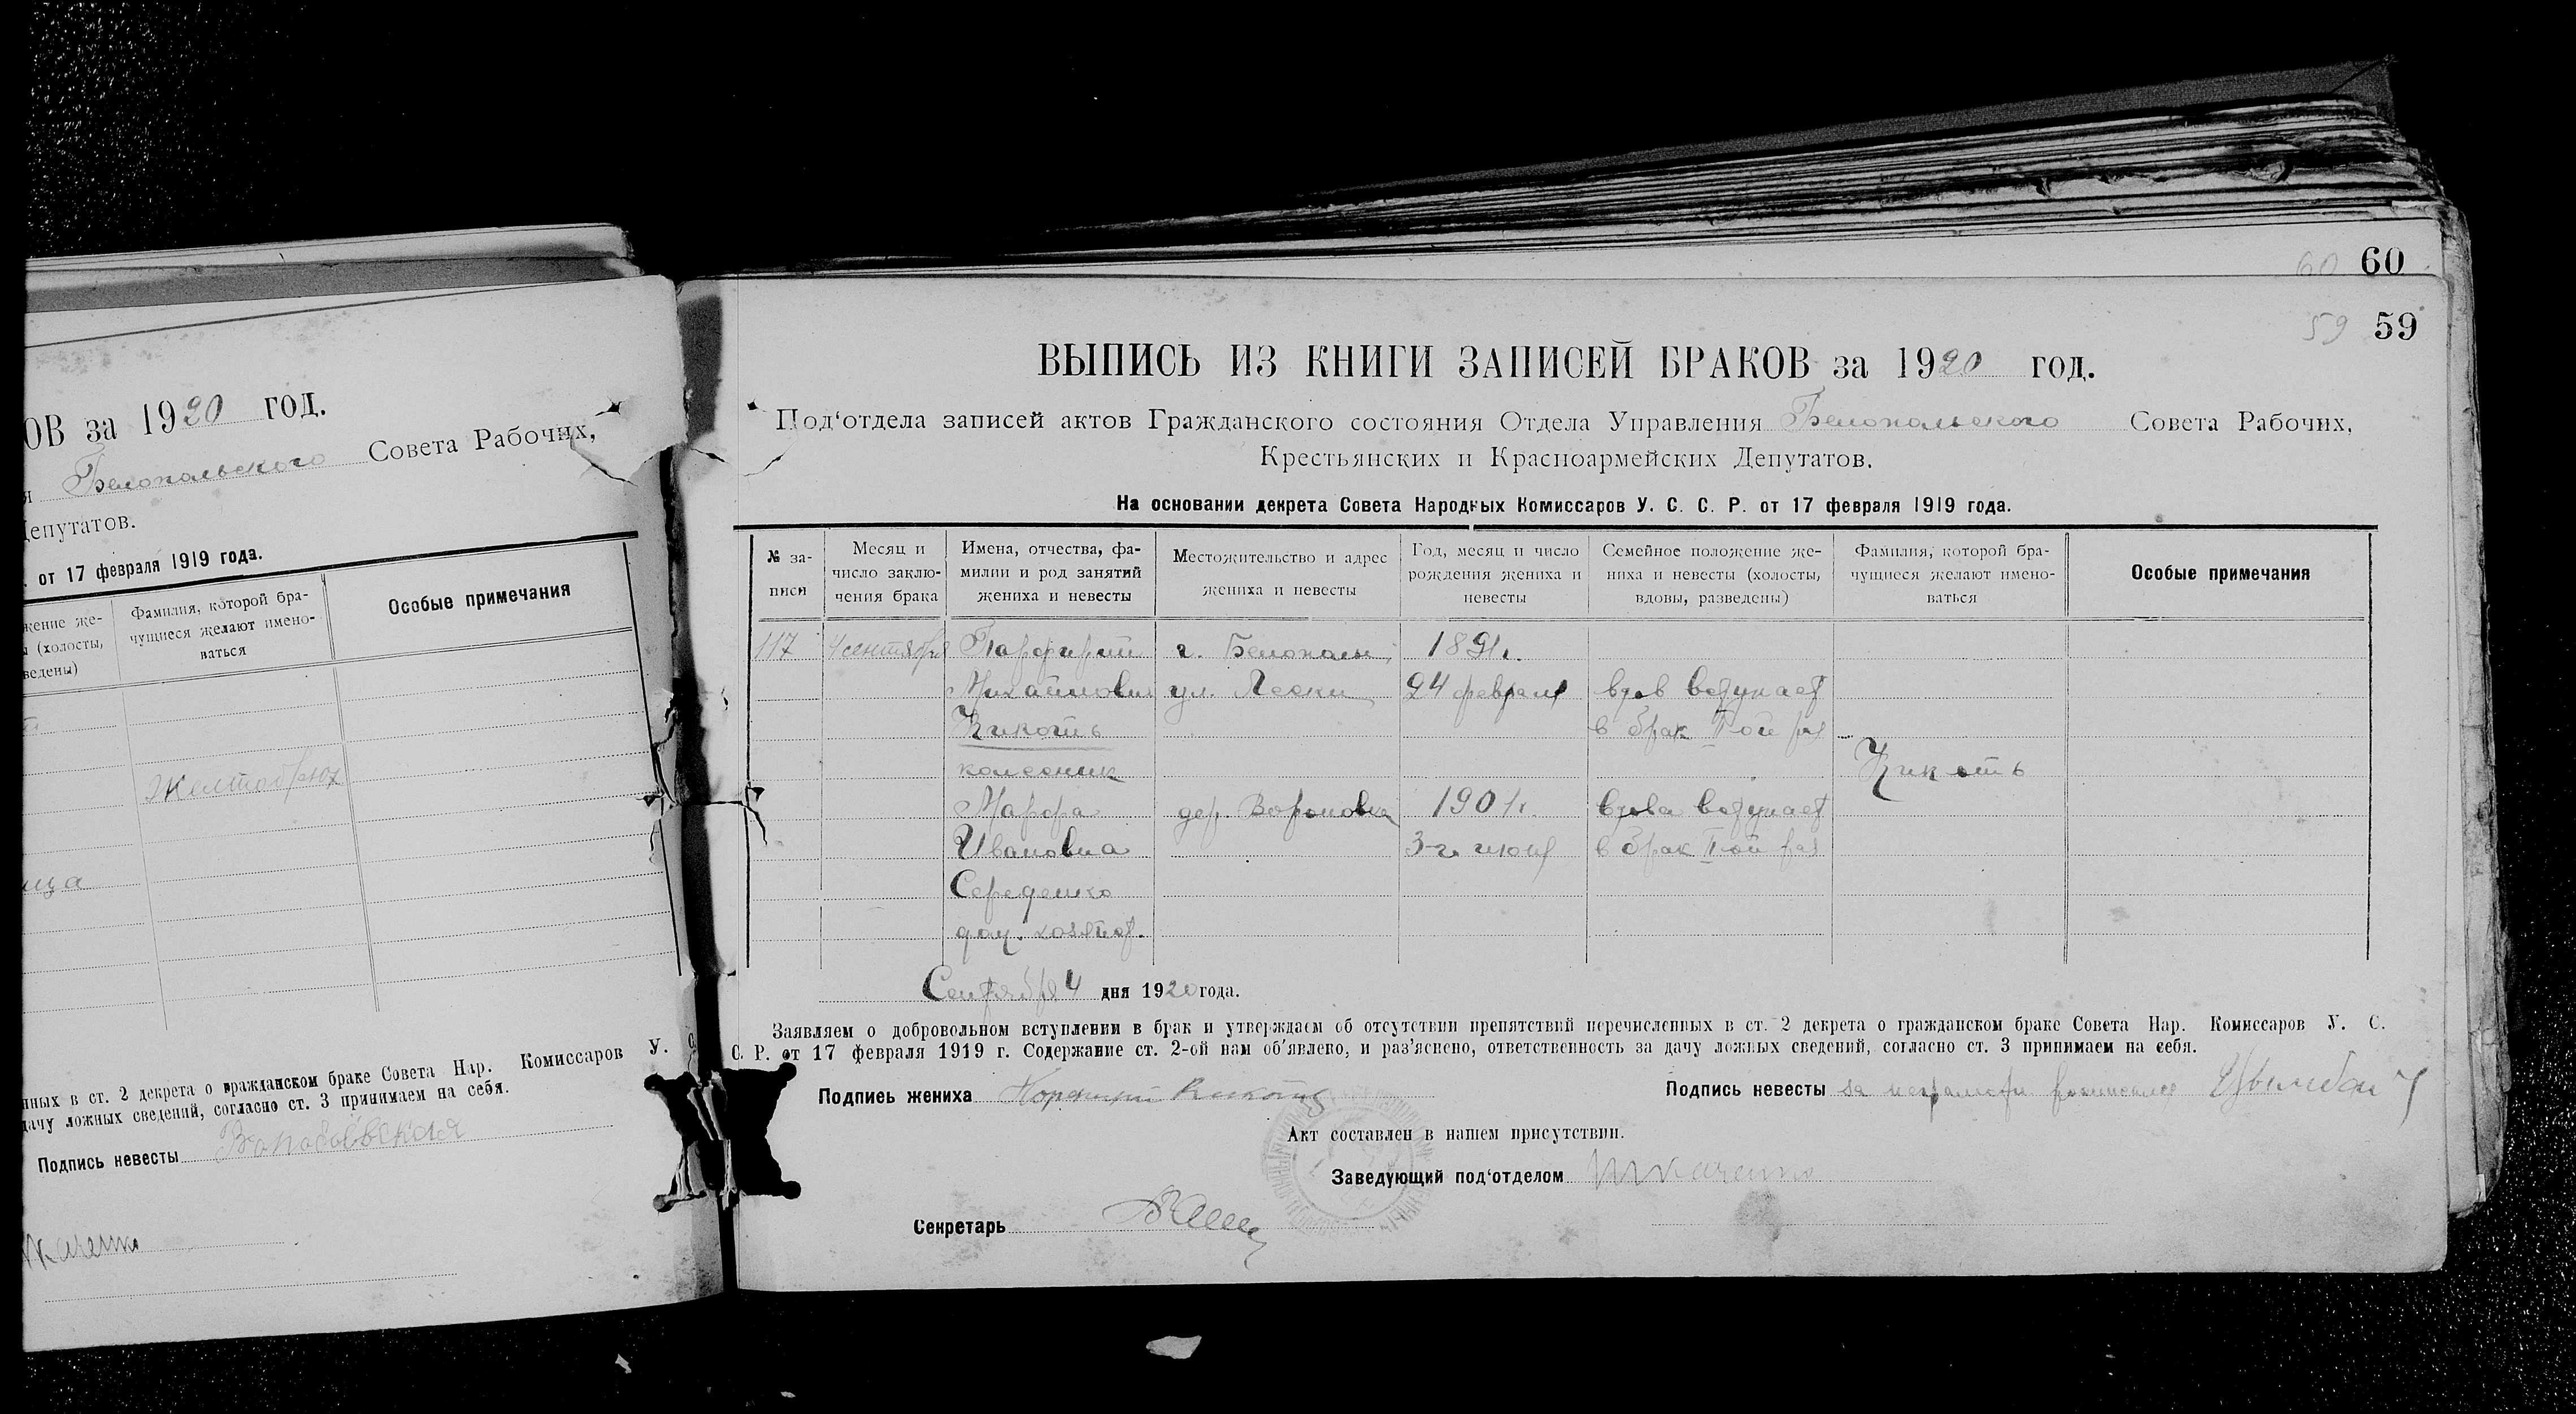 ОВ за 1920 год.
я Белопольского Совета Рабочих,
Депутатов.
. от 17 февраля 1919 года.
жение же-
и (холосты,
ведены)
Фамилия, которой бра-
чущиеся желают имено-
ваться
Особые примечания
Желтобрюх
ица
нных в ст. 2 декрета о гражданском браке Совета Нар. Комиссаров У. С.
дачу ложных сведений, согласно ст. 3 принимаем на себя.
Подпись невесты
60 60
59 59
ВЫПИСЬ ИЗ КНИГИ ЗАПИСЕЙ БРАКОВ за 1920 год.
Под‘отдела записей актов Гражданского состояния Отдела Управления Белопольского Совета Рабочих,
Крестьянских и Красноармейских Депутатов.
На основании декрета Совета Народных Комиссаров У. С. С. Р. от 17 февраля 1919 года.
№ за-
писи
Месяц и
число заклю-
чения брака
Имена, отчества, фа-
милии и род занятий
жениха и невесты
Местожительство и адрес
жениха и невесты
Год, месяц и число
рождения жениха и
невесты
Семейное положение же-
ниха и невесты (холосты,
вдовы, разведены)
Фамилия, которой бра-
чущиеся желают имено-
ваться
Особые примечания
117 4 сентября Парфирий г. Белополье, 1891 г.
Михайлович ул. Пески 24 февраля вдов вступает
Кикоть в брак II ой раз
колесник Кикоть
Марфа дер. Вороновка 1901 г. вдова вступает
Ивановна 3-го июня в брак II ой раз
Середенко
дом. хозяйст.
Сентября 4 дня 1920 года.
Заявляем о добровольном вступлении в брак и утверждаем об отсутствии препятствий перечисленных в ст. 2 декрета о гражданском браке Совета Нар. Комиссаров У. С.
С. Р. от 17 февраля 1919 г. Содержание ст. 2-ой нам об'явлено, и раз'яснено, ответственность за дачу ложных сведений, согласно ст. 3 принимаем на себя.
Подпись жениха Порфирий Кикоть
Подпись невесты за неграмотн росписался
Акт составлен в нашем присутствии.
Заведующий под‘отделом
Секретарь